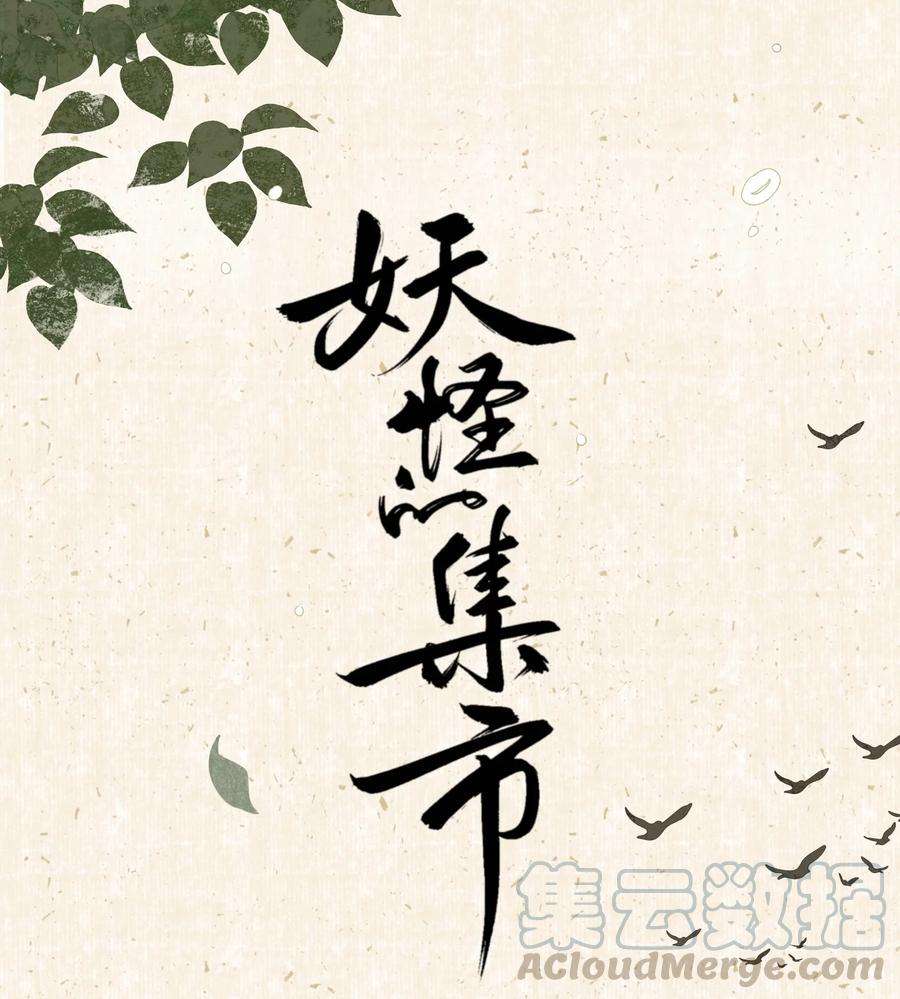 妖怪的集市
集云数据
ACloudMerge.com